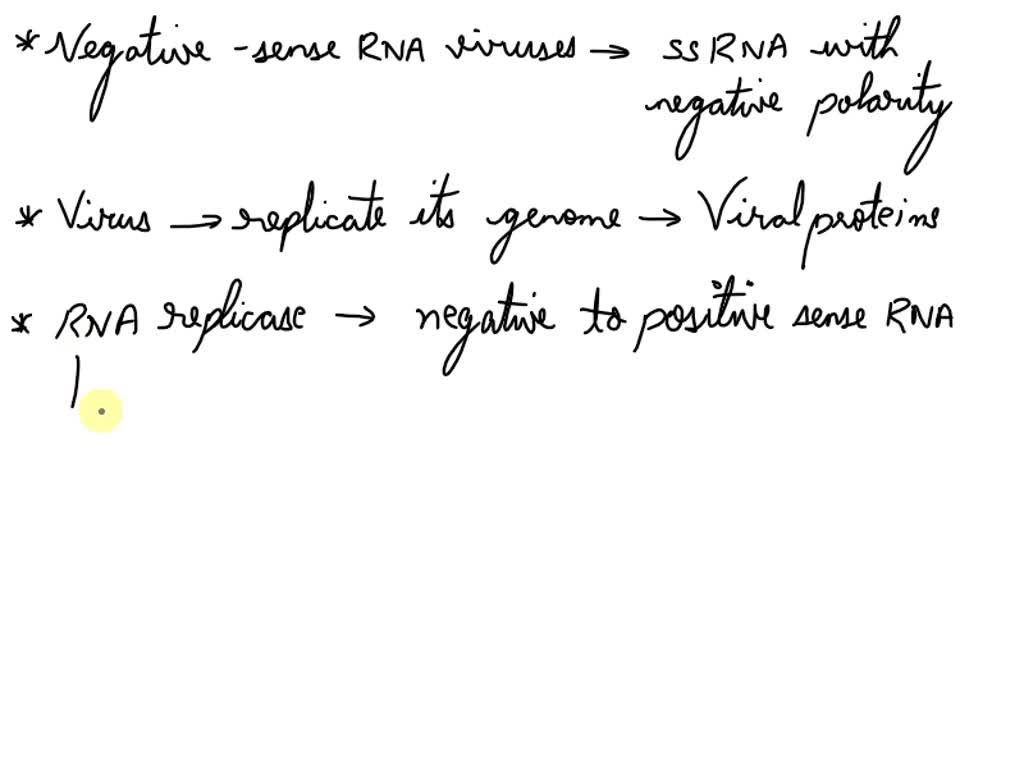 * Negative-sense RNA viruses → ssRNA with
negative polarity
* Virus → replicate its genome → Viral proteins
* RNA replicase → negative to positive sense RNA